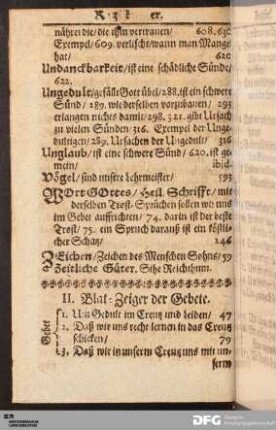 Regist er.
nähret die / die ihm vertrauen / 608. 630
Exempel / 609. verlischt / wann man Mangel
hat / 620
Undanckbarkeit / ist eine schädliche Sünde /
622.
Ungedult / gefällt Gott übel / 288. ist ein schwere
Sünd / 289. wie derselben vorzubauen / 293
erlangen nichts damit / 298. 321. gibt Ursach
zu vielen Sünden 316. Exempel der Unge-
dultigen / 289. Ursachen der Ungedult / 316
Unglaub / ist eine schwere Sünd / 620. ist ge-
mein / ibid.
Vögel / sind unsere Lehrmeister / 595
Wort GOttes / Heil. Schrifft / mit
derselben Trost-Sprüchen sollen wir uns
im Gebet auffrichten / 74. darin ist der beste
Trost / 75. ein Spruch darauß ist ein köstli-
cher Schatz / 246
Zeichen / Zeichen des Menschen Sohns / 59
Zeitliche Güter. Sihe Reichthum.
II. Blat-Zeiger der Gebete.
Gebet
1. Um Gedult im Creutz und leiden / 47
2. Daß wir uns recht lernen in das Creutz
schicken / 79
3. Daß wir in unserm Creutz uns mit un-
serm
DFG